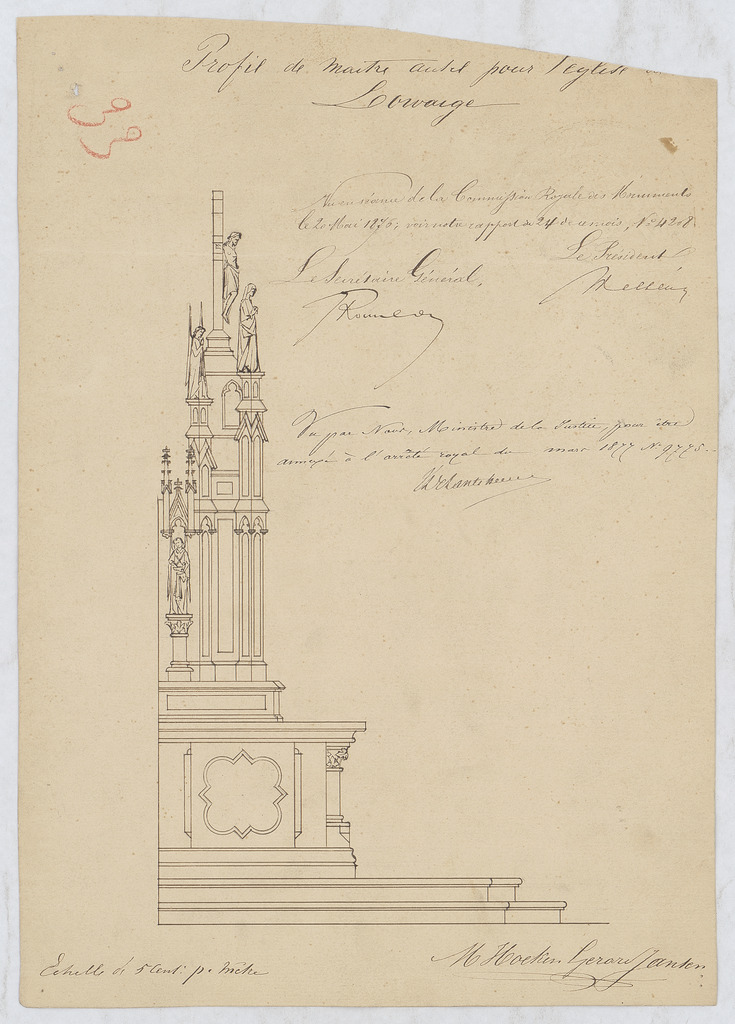 Profil de maitre autel pour l'eglise de
Lowaige
33
Vu en séance de la Commission Royale des Monuments
le 20 Mai 1876; voir notre rapport du 24 de ce mois, No 4208
Le Président
Le Secrétaire Général,
Rousseau
Vu par Nous, Ministre de la Justice, pour être
annexé à l'arrêté royal du mars 1877 No 9775.
Echelle de 5 Cent. p. mètre
M Hoeken Gerard Jansen